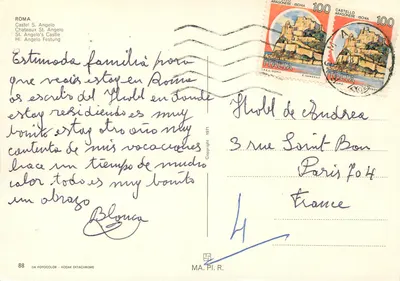 ROMA
Castel S. Angelo
Chateaux St. Angelo
St. Angelo's Castle
St. Angelo Festung
Estimada familia para
que veais estoy en Roma
os escribo del Hotel en donde
estoy residiendo es muy
bonito estoy otro año muy
contenta de mis vacaciones
hace un tiempo de mucho
calor, todo es muy bonito
un abrazo
Blanca
100
CASTELLO
ARAGONESE - ISCHIA
100
CASTELLO
ARAGONESE - ISCHIA
Hotel de Andrea
3 rue Saint Bon
Paris 704
France
4
Copyright 1971
88
MA. PI. R.